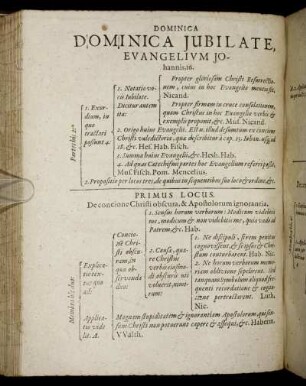 DOMINICA
DOMINICA JUBILATE,
EVANGELIVM JO-
hannis, 16.
Partes hic 2.
1. Exor-
dium, in
quo
tractari
possunt 4.
1. Notatio vo-
cis Jubilate.
Dicitur autem
ita:
Propter gloriosam Christi Resurrectio-
nem, cuius in hoc Evangelio
Nicand.
Propter firmam in cruce consolationem,
quam Christus in hoc Evangelio verbo &
exemplo proponit, &c. Mus. Nicand.
2. Origo huius Evangelii. Est n. illud desumtum ex
Christi valedictoria, quæ describitur à cap. 13. Iohan. usq; ad
18. &c. Hes. Hab. Fisch.
3. Summa huius Evangelii, &c. Hesh. Hab.
4. Ad quæ Catechismi partes hoc Evangelium referri possit,
Mus. Fisch. Pom. Mencelius.
2. Propositio per locos tres, de quibus in sequentibus suo loco & ordine, &c.
PRIMUS LOCUS.
De concione Christi obscura, & Apostolorum ignorantia.
Membra hic duo:
Explica-
tio, ter-
tia quo
ad:
Concio-
nē Chri-
sti obscu-
ram, in
qua ob-
servanda
duo:
1. Sensus horum verborum: Modicum videbitis
me, modicum & non videbitis me, quia vado ad
Patrem &c. Hab.
2. Causæ, qua-
re Christus
verba in
di obscuris uti
voluerit, nimi-
rum:
1. Ne discipuli, rerum peritia
cognoscerent, & seipsos & Chri-
stum contristarent. Hab. Nic.
2. Ne horum verborum memo-
riam oblivione sepelirent. Id
tanquam symbolum aliquod fre-
quenti recordatione & cogita-
tione pertractarent. Luth.
Nic.
Applica-
tio vide
lit. A.
Magnam stupiditatem & ignorantiam Apostolorum, quæ ser-
mones Christi non potuerunt capere & assequi, &c. Haberm.
VValth.